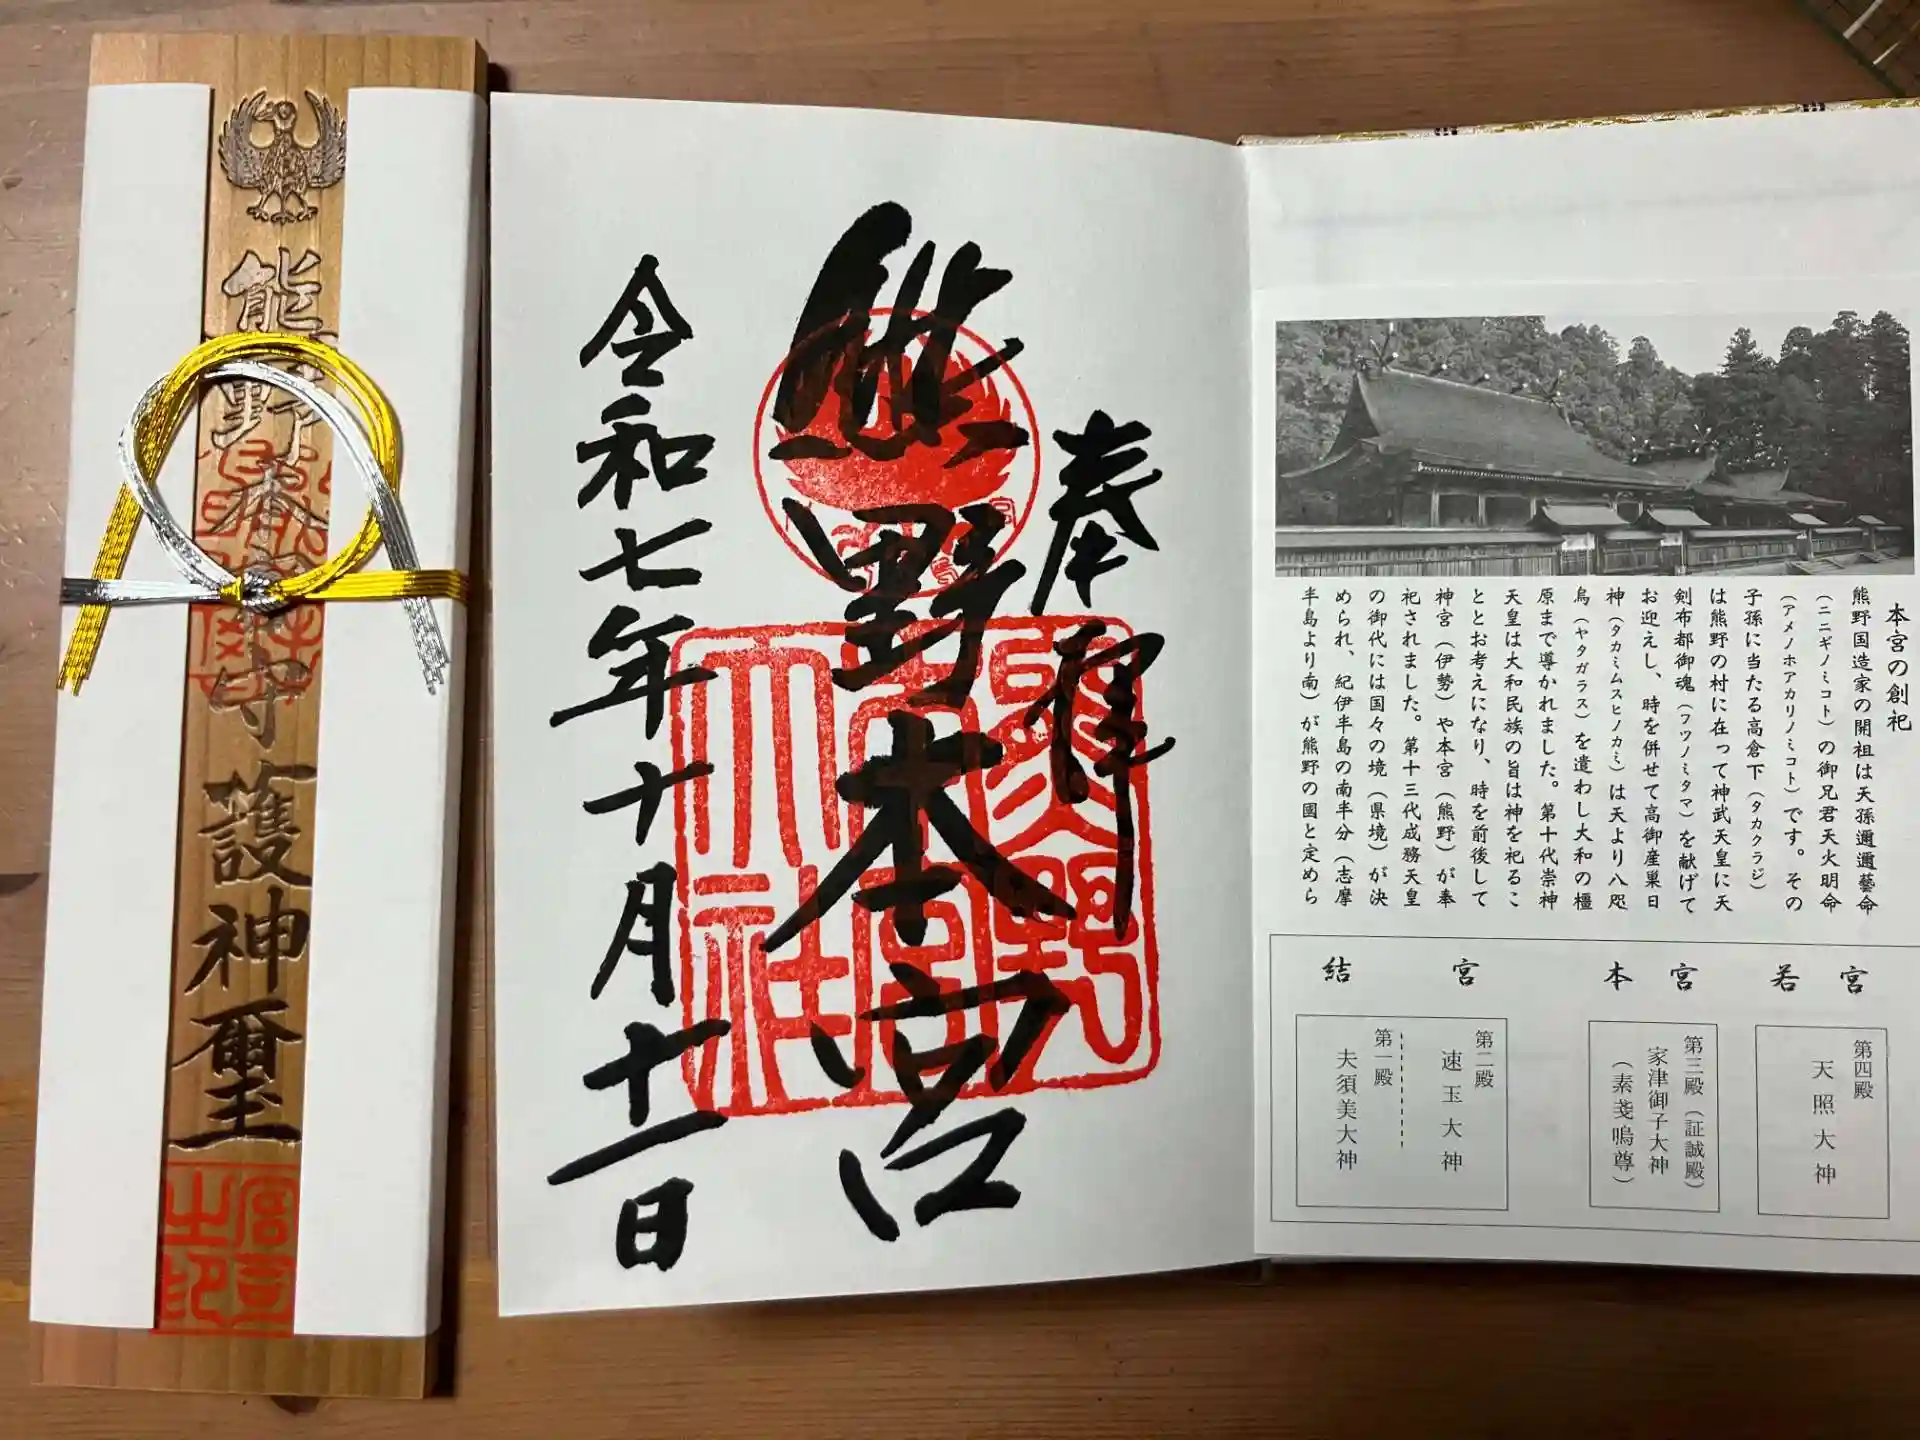 熊野本宮守護神璽
宮司之印
奉拝
熊野本宮
熊野本宮大社
令和七年十月十一日
本宮の創祀
熊野国造家の開祖は天孫邇邇藝命
（ニニギノミコト）の御兄君天火明命
（アメノホアカリノミコト）です。その
子孫に当たる高倉下（タカクラジ）
は熊野の村に在って神武天皇に天
剣布都御魂（フツノミタマ）を献げて
お迎えし、時を併せて高御産巣日
神（タカミムスヒノカミ）は天より八咫
烏（ヤタガラス）を遣わし大和の橿
原まで導かれました。第十代崇神
天皇は大和民族の旨は神を祀るこ
ととお考えになり、時を前後して
神宮（伊勢）や本宮（熊野）が奉
祀されました。第十三代成務天皇
の御代には国々の境（県境）が決
められ、紀伊半島の南半分（志摩
半島より南）が熊野の國と定めら
若宮
第四殿
天照大神
本宮
第三殿（証誠殿）
家津御子大神
（素戔嗚尊）
結宮
第二殿
速玉大神
第一殿
夫須美大神